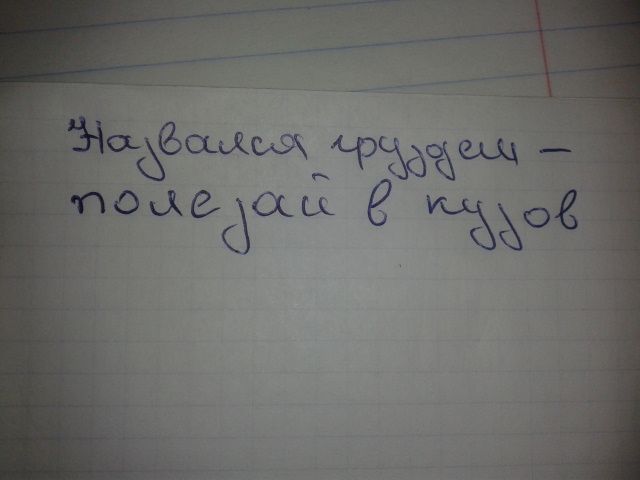 Назвался груздем –
полезай в кузов